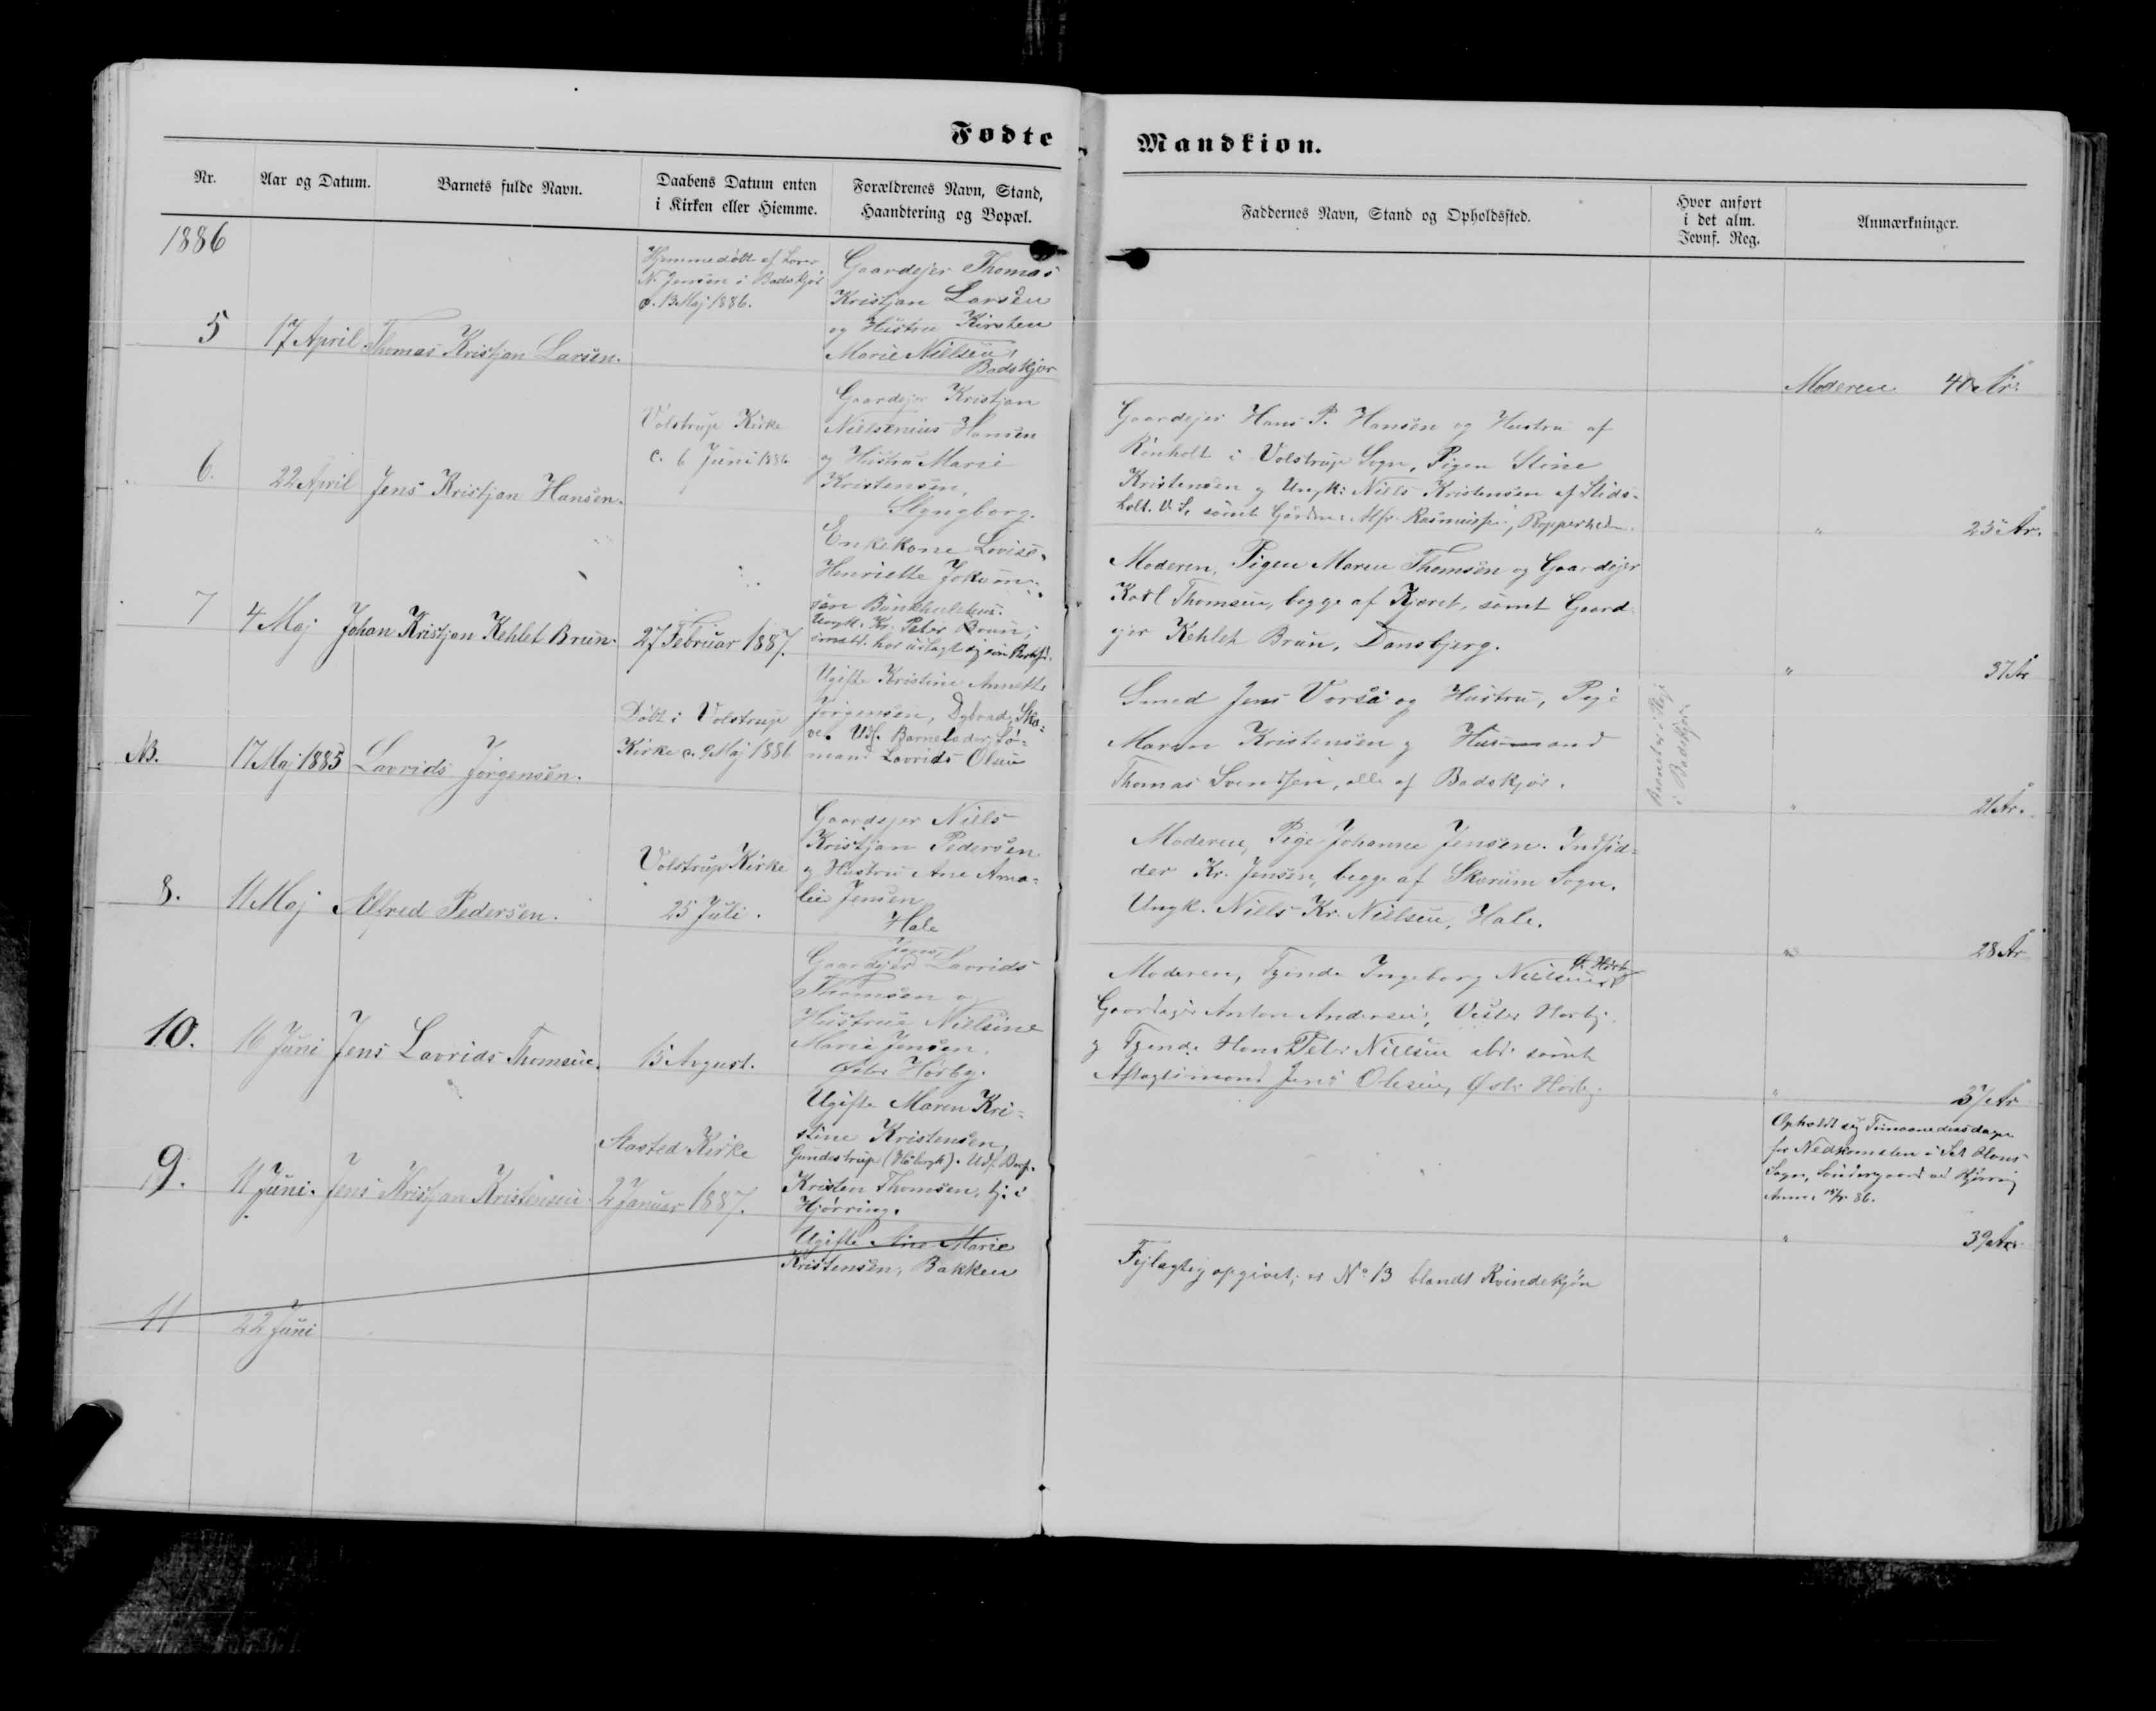 Fødte
Mandkiøn.
Nr.
Aar og Datum.
Barnets fulde Navn.
Daabens Datum enten
i Kirken eller Hiemme.
Forældrenes Navn, Stand,
Haandtering og Bopæl.
Faddernes Navn, Stand og Opholdssted.
Hvor anført
i det alm.
Jevnf. Reg.
Anmærkninger.
1886
5
17 April
Thomas Kristjan Larsen.
Hjemmedøbt af Lærer
N. Jensen i Badskjær
d. 13 Maj 1886.
Gaardejer Thomas
Kristjan Larsen
og Hustru Kirsten
Marie Nielsen,
Badskjær
Moderen År.
6.
22 April
Jens Kristjan Hansen.
Volstrup Kirke
6 Juni 1886
Gaardejer Kristjan
Nielsenius Hansen
og Hustru Marie
Kristensen,
Slyngborg.
Gaardejer Hans P. Hansen og Hustru af
Rönholt i Volstrup Sogn, Pigen Stine
Kristensen og Ungk: Niels Kristensen af Stids-
holt. V. S. samt
" 25 År.
7
4 Maj
Johan Kristjan Kehlet Brun.
27 Februar 1887.
Enkekone Lovise
Henriette Jokum-
sen
Ungk. Kr. Peter Brun,
Moderen, Pigen Maren Thomsen og Gaardejer
Karl Thomsen, begge af Kjæret, samt Gaard
ejer Kehlet Brun, Dansbjerg.
" 37 År
NB.
17 Maj 1885
Lavrids Jørgensen.
Døbt i Volstrup
Kirke d. 9 Maj 1886
Ugifte Kristine Annette
Jørgensen, Dybvad, Ska-
ve. Udl. Barnefader, Sø-
mand Lavrids Olsen
Smed Jens Vorså og Hustru, Pige
Maren Kristensen og Husmand
Thomas Svendsen, alle af Badskjær.
i Badskjær.
" 21 År.
8.
11 Maj
Alfred Pedersen.
Volstrup Kirke
25 Juli.
Gaardejer Niels
Kristjan Pedersen
og Hustru Ane Ama-
lie Jensen
Hale
Moderen, Pige Johanne Jensen. Indsid-
der Kr. Jensen, begge af Skærum Sogn.
Ungk. Niels Kr. Nielsen, Hale.
" 28 År
10.
16 Juni
Jens Lavrids Thomsen.
15 Avgust.
Jens
Gaardejer Lavrids
Thomsen og
Hustrue Nielsine
Marie Jensen.
Øster Hørby.
Ø. Hørby
Moderen, Tyende Ingeborg Nielsen,
Gaardejer Anton Andersen, Vester Hørby
og Tyende Hans Peter Nielsen samt
Aftægtsmand Jens Olesen, Øster Hørby
" 37 År
9.
11 Juni.
Jens Kristjan Kristensen
Aasted Kirke
2 Januar 1887.
Ugifte Maren Kri-
stine Kristensen,
Gundestrup Udl. Barf.
Kristen Thomsen, tj. i
Hjørring.
Opholdt sig Timaanedersdagen
før Nedkomsten i Sct. Hans
Sogn, ved Hjørring
" 39 År
11
22 Juni
Ugifte Ane Marie
Kristensen, Bakken
Fejlagtig opgivet; er No 13 blandt Kvindekjøn